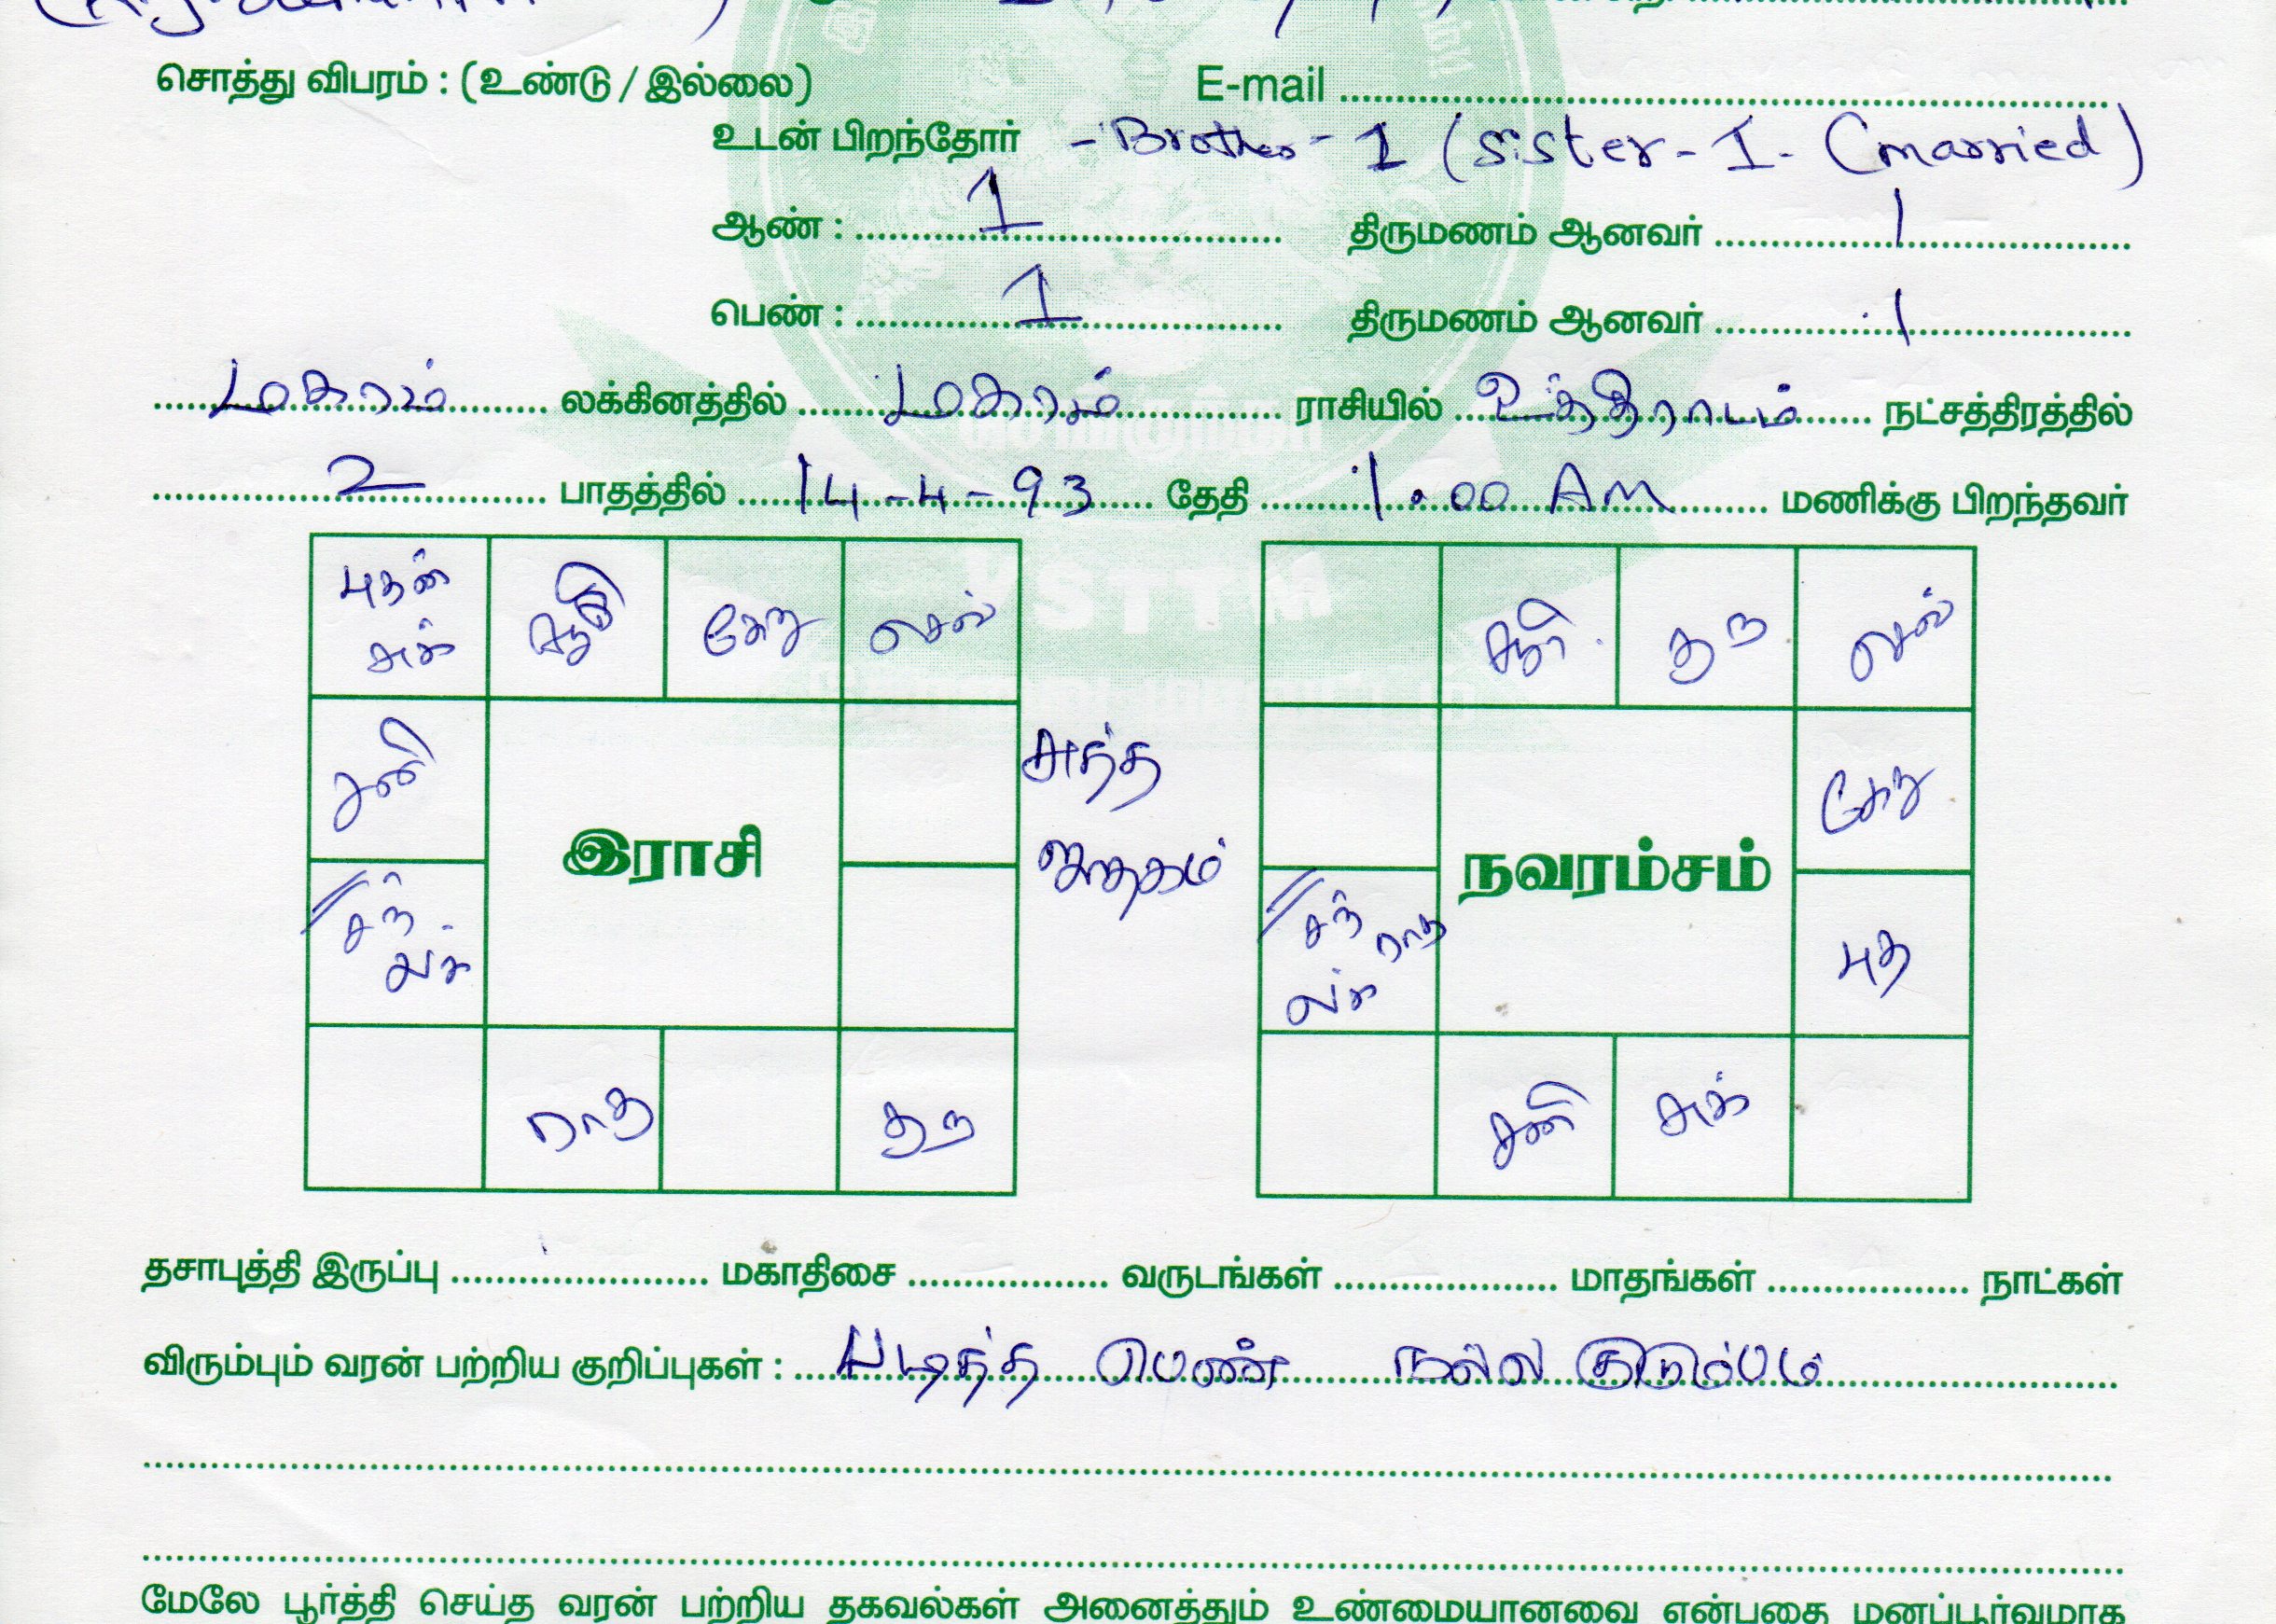 சொத்து விபரம் : (உண்டு / இல்லை) E-mail
உடன் பிறந்தோர் - Brother - 1 (sister - 1 - (married)
ஆண் : 1 திருமணம் ஆனவர் 1
பெண் : 1 திருமணம் ஆனவர் 1
மகரம் லக்கினத்தில் மகரம் ராசியில் உத்திராடம் நட்சத்திரத்தில்
2 பாதத்தில் 14-4-93 தேதி 1.00 AM மணிக்கு பிறந்தவர்
புதன் சுக் கேது செவ்
சூரி குரு செவ்
சனி
கேது
இராசி
நவரம்சம்
சந் லக்
சந் ராகு லக்
புத
ராகு குரு
சனி சுக்
VSTTM
தசாபுத்தி இருப்பு மகாதிசை வருடங்கள் மாதங்கள் நாட்கள்
விரும்பும் வரன் பற்றிய குறிப்புகள் : படித்த பெண் நல்ல குடும்பம்
மேலே பூர்த்தி செய்த வரன் பற்றிய தகவல்கள் அனைத்தும் உண்மையானவை என்பதை மனப்பூர்வமாக